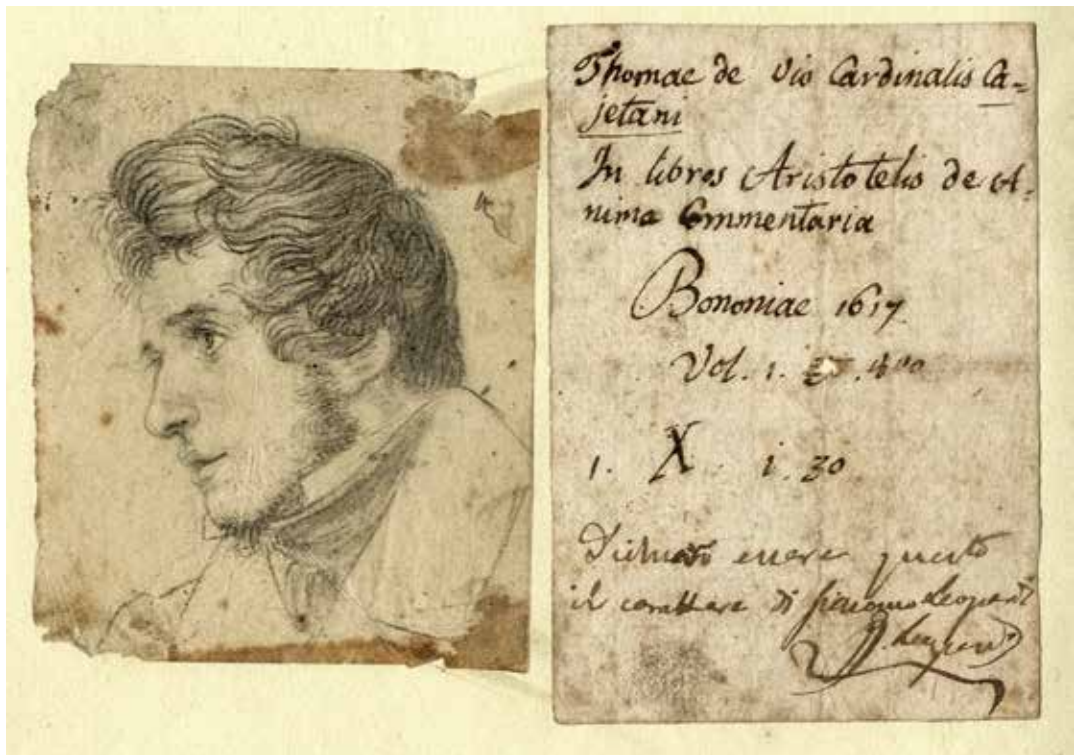 Thomae de Vio Cardinalis Ca=
jetani
In libros Aristotelis de A-
nima Commentaria
Bononiae 1617
Vol. 1.
1. X 1. 30
Dichiaro essere questo
il carattere di Giacomo Leopardi
Leopardi